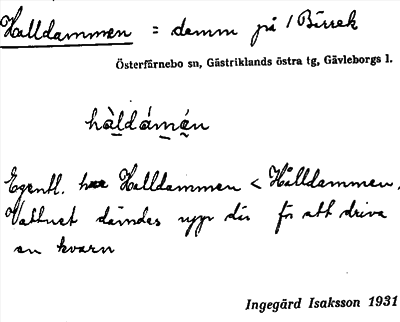 Halldammen = damm på / Birrek
Österfärnebo sn, Gästriklands östra tg, Gävleborgs l.
hàldámén
Egentl. Halldammen < Hålldammen.
Vattnet dämdes upp där för att driva
en kvarn
Ingegärd Isaksson 1931